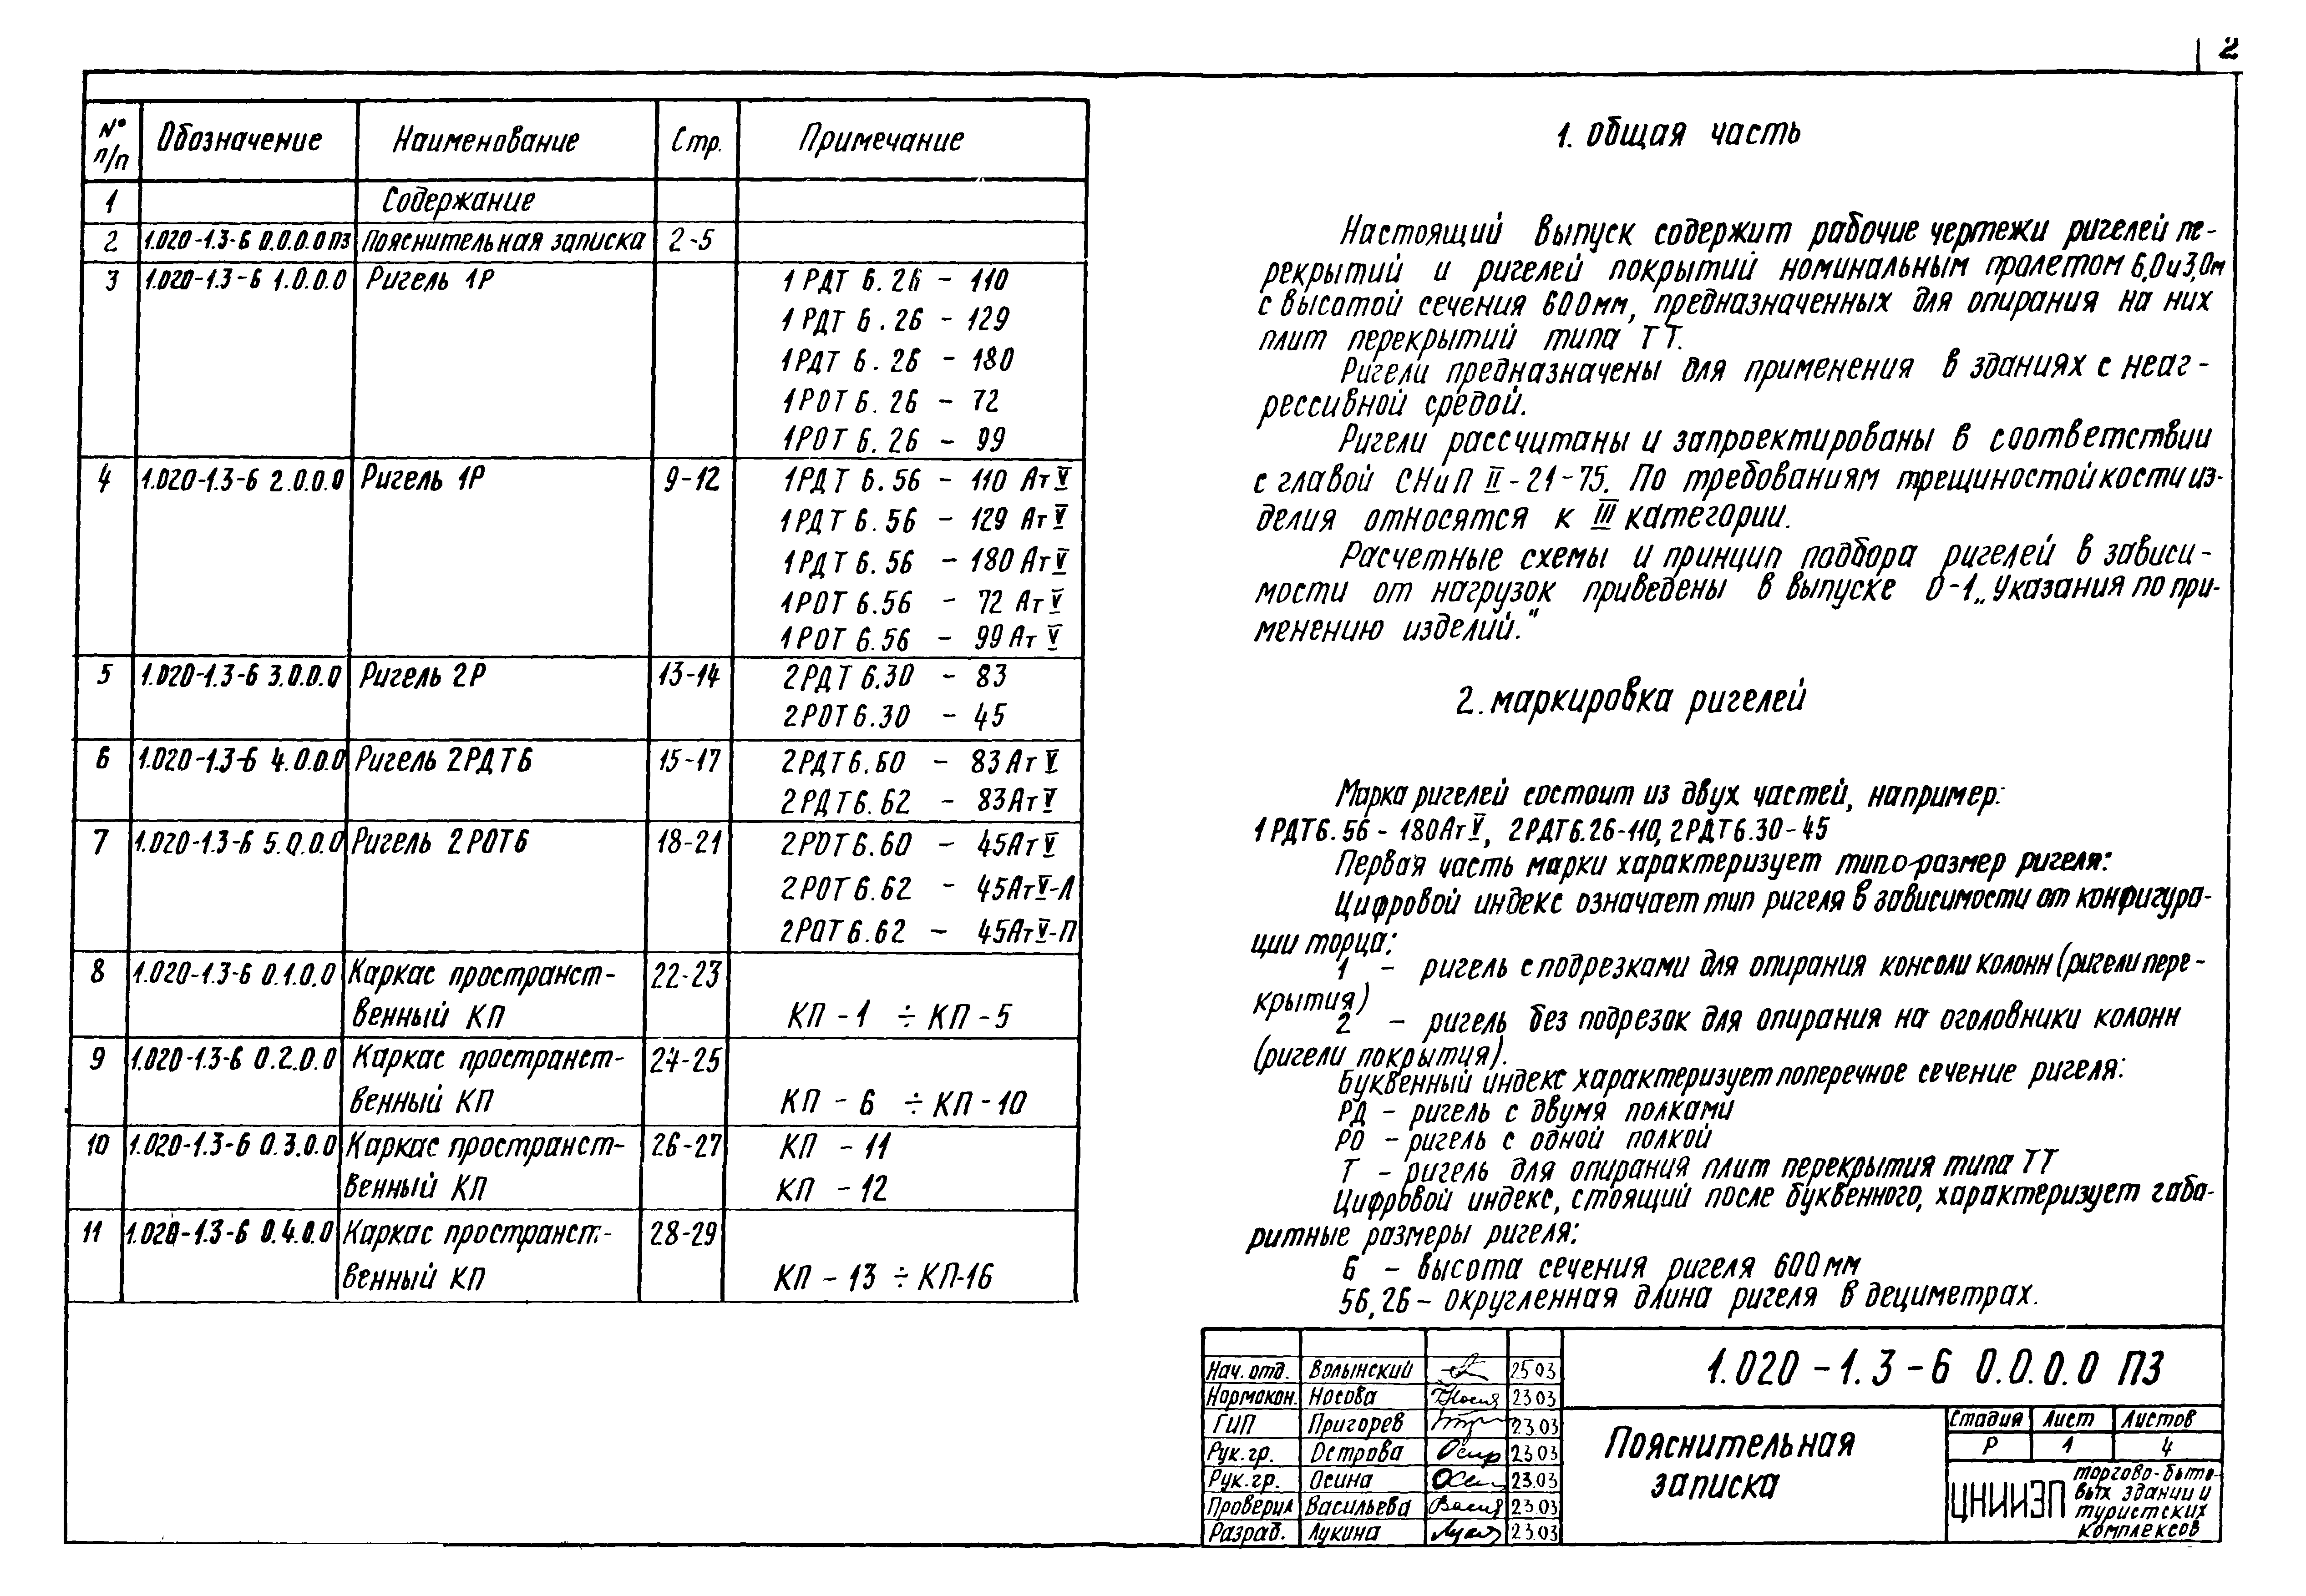 2
№ п/п Обозначение Наименование Стр. Примечание
1 Содержание
2 1.020-1.3-6 0.0.0.0 ПЗ Пояснительная записка 2-5
3 1.020-1.3-6 1.0.0.0 Ригель 1Р 1РДТ 6.26 - 110
1РДТ 6.26 - 129
1РДТ 6.26 - 180
1РОТ 6.26 - 72
1РОТ 6.26 - 99
4 1.020-1.3-6 2.0.0.0 Ригель 1Р 9-12 1РДТ 6.56 - 110 АтV
1РДТ 6.56 - 129 АтV
1РДТ 6.56 - 180 АтV
1РОТ 6.56 - 72 АтV
1РОТ 6.56 - 99 АтV
5 1.020-1.3-6 3.0.0.0 Ригель 2Р 13-14 2РДТ 6.30 - 83
2РОТ 6.30 - 45
6 1.020-1.3-6 4.0.0.0 Ригель 2РДТ6 15-17 2РДТ6.60 - 83 АтV
2РДТ6.62 - 83АтV
7 1.020-1.3-6 5.0.0.0 Ригель 2РОТ6 18-21 2РОТ6.60 - 45АтV
2РОТ6.62 - 45АтV-Л
2РОТ6.62 - 45АтV-П
8 1.020-1.3-6 0.1.0.0 Каркас пространст- 22-23
венный КП КП-1 ÷ КП-5
9 1.020-1.3-6 0.2.0.0 Каркас пространст- 24-25
венный КП КП-6 ÷ КП-10
10 1.020-1.3-6 0.3.0.0 Каркас пространст- 26-27 КП -11
венный КП КП -12
11 1.020-1.3-6 0.4.0.0 Каркас пространст- 28-29
венный КП КП-13 ÷ КП-16
1. Общая часть
Настоящий выпуск содержит рабочие чертежи ригелей пе-
рекрытий и ригелей покрытий номинальным пролетом 6,0 и 3,0м
с высотой сечения 600мм, предназначенных для опирания на них
плит перекрытий типа ТТ.
Ригели предназначены для применения в зданиях с неаг-
рессивной средой.
Ригели рассчитаны и запроектированы в соответствии
с главой СНиП II-21-75. По требованиям трещиностойкости из-
делия относятся к III категории.
Расчетные схемы и принцип подбора ригелей в зависи-
мости от нагрузок приведены в выпуске 0-1 „Указания по при-
менению изделий."
2. маркировка ригелей
Марка ригелей состоит из двух частей, например:
1РДТ6.56-180АтV, 2РДТ6.26-110, 2РДТ6.30-45
Первая часть марки характеризует типо-размер ригеля:
Цифровой индекс означает тип ригеля в зависимости от конфигура-
ции торца:
1 - ригель с подрезками для опирания консоли колонн (ригели пере-
крытия)
2 - ригель без подрезок для опирания на оголовники колонн
(ригели покрытия).
Буквенный индекс характеризует поперечное сечение ригеля:
РД - ригель с двумя полками
РО - ригель с одной полкой
Т - ригель для опирания плит перекрытия типа ТТ
Цифровой индекс, стоящий после буквенного, характеризует габа-
ритные размеры ригеля:
6 - высота сечения ригеля 600мм
56,26 - округленная длина ригеля в дециметрах.
Нач. отд. Волынский 25 03
Нормокон. Носова 23 03
ГИП Пригорев 23.03
Рук. гр. Острова 23.03
Рук. гр. Осина 23.03
Проверил Васильева 23.03
Разраб. Лукина 23.03
1.020-1.3-6 0.0.0.0 ПЗ
Пояснительная
записка
Стадия Лист Листов
Р 1 4
ЦНИИЭП торгово-быто-
вых зданий и
туристских
комплексов